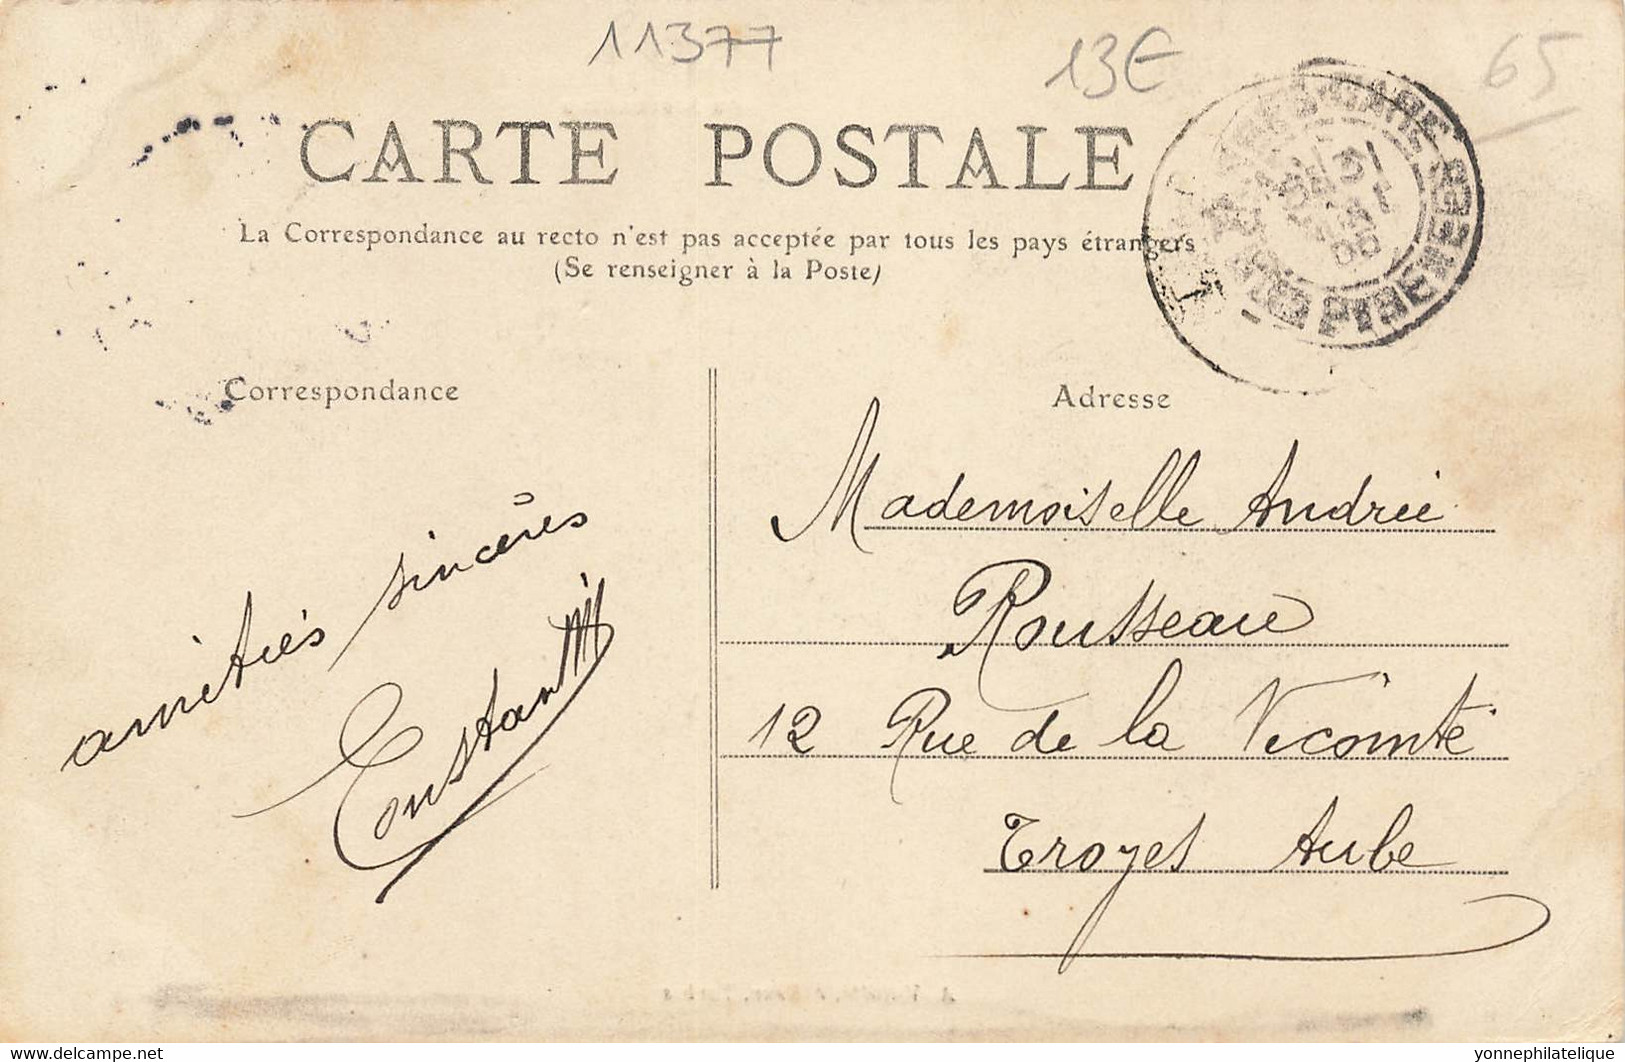 11377
13€
65
CARTE POSTALE
La Correspondance au recto n'est pas acceptée par tous les pays étrangers
(Se renseigner à la Poste)
PYRENEES
Correspondance
amitiés sincères
Constant
Adresse
Mademoiselle Andrée
Rousseau
12 Rue de la Vicomté
Troyes Aube
www.delcampe.net
yonnephilatelie